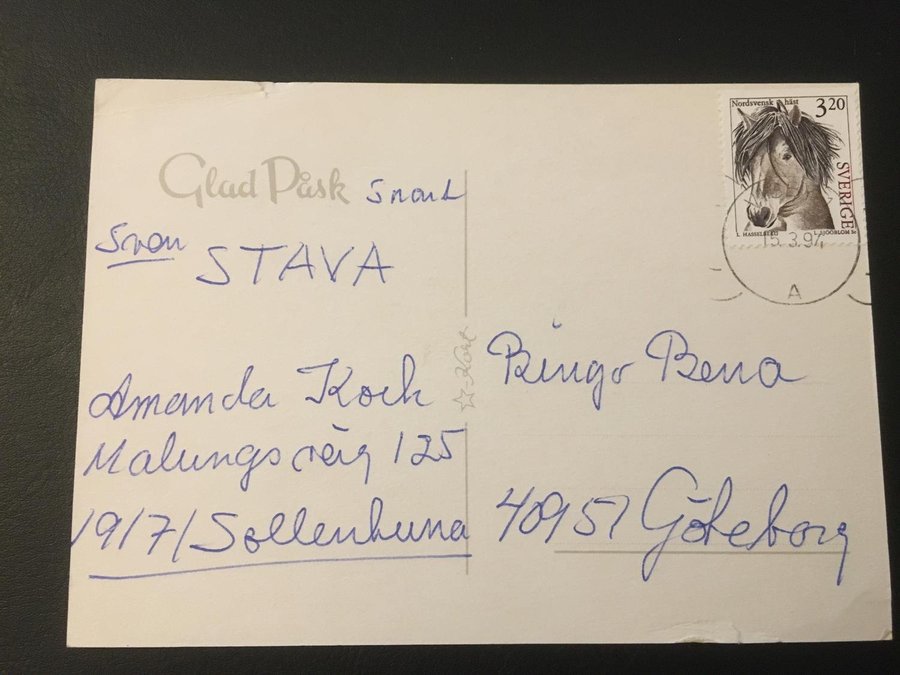 Glad Påsk Snart
Svar
STAVA
Amanda Koch
Malungsväg 125
19171 Sollentuna
☆-Kort
Nordsvensk häst
3.20
SVERIGE
L. SJÖÖBLOM SC
15.3.94
A
Bingo Bena
40951 Göteborg